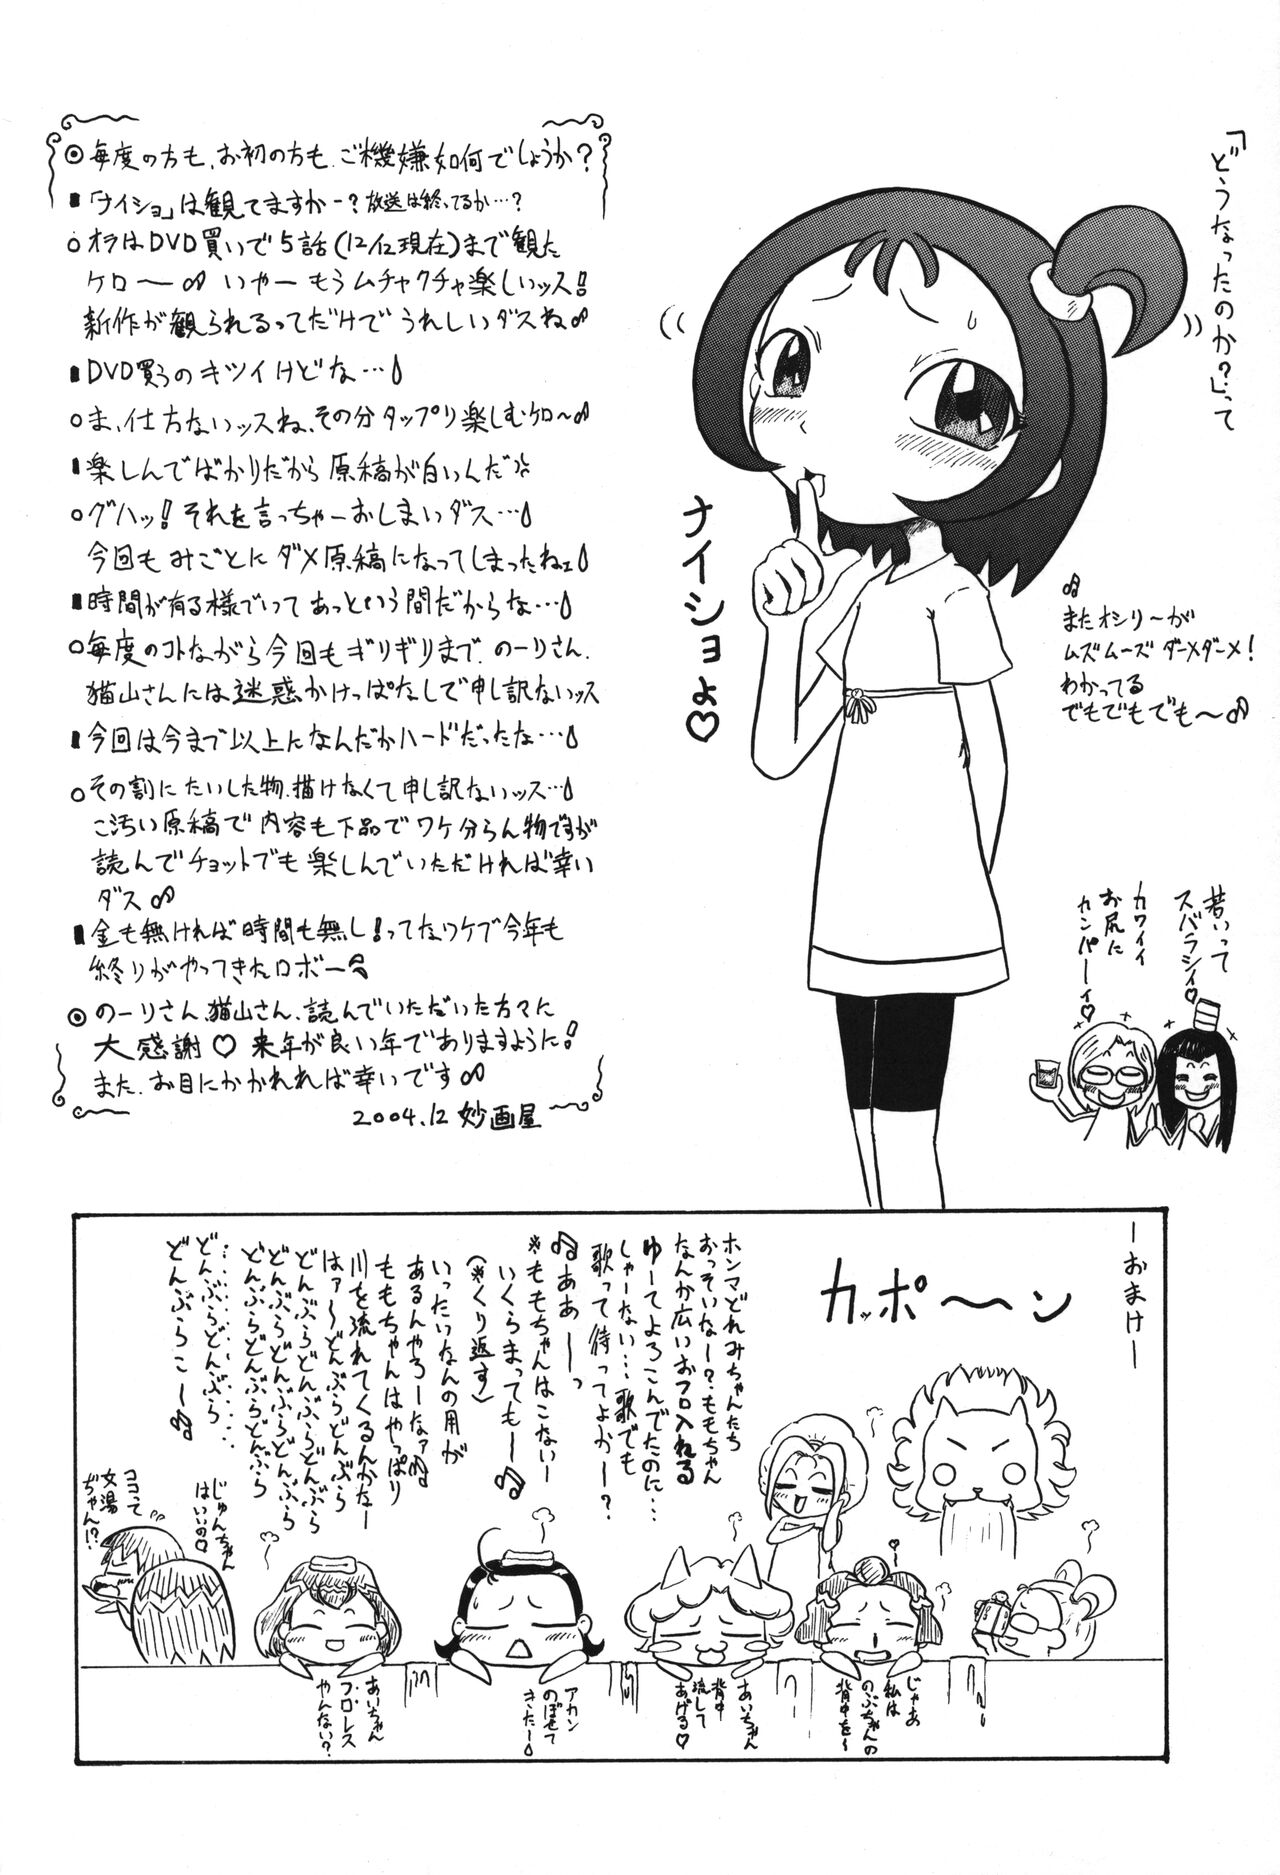 ◎毎度の方も、お初の方も、ご機嫌如何でしょうか?
■「ナイショ」は観てますかー?放送は終ってるか…?
○オラはDVD買いで5話(12/2現在)まで観た
ケロ〜♪ いやーもうムチャクチャ楽しいッス!
新作が観られるってだけでうれしいダスね♪
■DVD買うのキツイけどな…
○ま、仕方ないッスね、その分タップリ楽しむケロ〜♪
■楽しんでばかりだから原稿が白いんだ
○グハッ!それを言っちゃーおしまいダス…
今回もみごとにダメ原稿になってしまったねェ
■時間が有る様でいてあっという間だからな…
○毎度のコトながら今回もギリギリまで、のーりさん、
猫山さんには迷惑かけっぱなしで申し訳ないッス
■今回は今まで以上になんだかハードだったな…
○その割にたいした物、描けなくて申し訳ないッス…
こ汚い原稿で内容も下品でワケ分らん物ですが
読んでチョットでも楽しんでいただければ幸い
ダス♪
■金も無ければ時間も無し!ってなワケで今年も
終りがやってきたロボー
◎のーりさん、猫山さん、読んでいただいた方々に
大感謝♡来年が良い年でありますように!
また、お目にかかれれば幸いです♪
2004.12 妙画屋
「どうなったのか?」って
ナイショよ♡
♪
またオシリ〜が
ムズムーズ ダーメダーメ!
わかってる
でもでもでも〜♪
若いって
スバラシィ♡
カワイイ
お尻に
カンパーイ♡
ーおまけー
カッポ〜〜ン
ホンマどれみちゃんたち
おっそいなー?ももちゃん
なんか広いおフロ入れる
ゆーてよろこんでたのに…
しゃーない…歌でも
歌って待ってよかー?
♫ああーーっ
※ももちゃんはこないー
いくらまってもー♫
(※くり返す)
いったいなんの用が
あるんやろーなァ
ももちゃんはやっぱり
川を流れてくるんかなー
はァ〜どんぶらどんぶら
どんぶらどんぶらどんぶら
どんぶらどんぶらどんぶら
どんぶらどんぶらどんぶら
……………………
どんぶらどんぶら……
どんぶらこー♫
じゃあ
私は
のぶちゃんの
背中を〜
あいちゃん
背中
流して
あげる♡
アカン
のぼせて
きたー
あいちゃん
フロレス
やんない?
じゅんちゃん
はいいの♡
ココって
女湯
ぢゃん!?